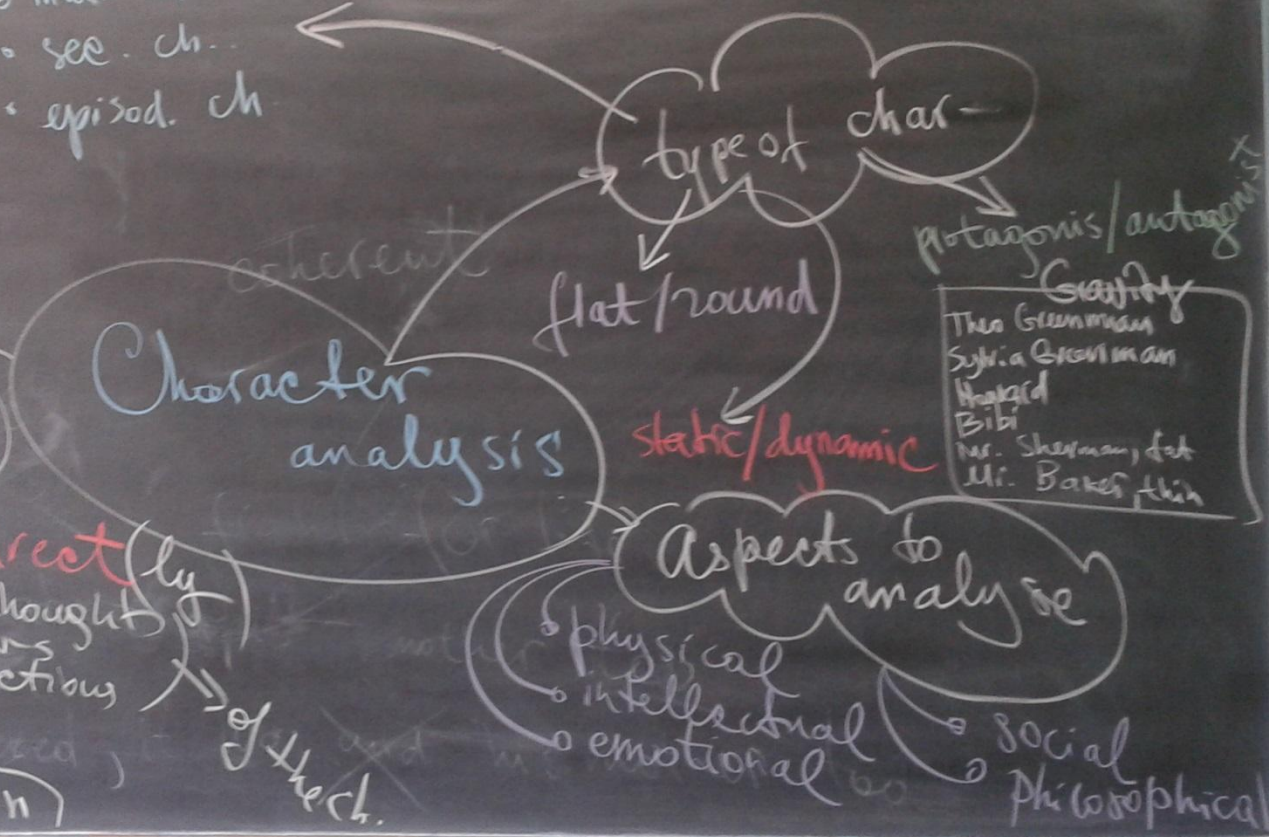 • sec. ch..
• episod. ch
type of char-
protagonis/antagonist
flat/round
static/dynamic
Gravity
Theo Greenmuan
Sylvia Greenman
Howard
Bibi
Mr. Sherman, fat
Mr. Baker, thin
coherent
Character
analysis
Aspects to
analyse
physical
intellectual
emotional
social
philosophical
rect(ly)
houghts
ctions
of the ch.